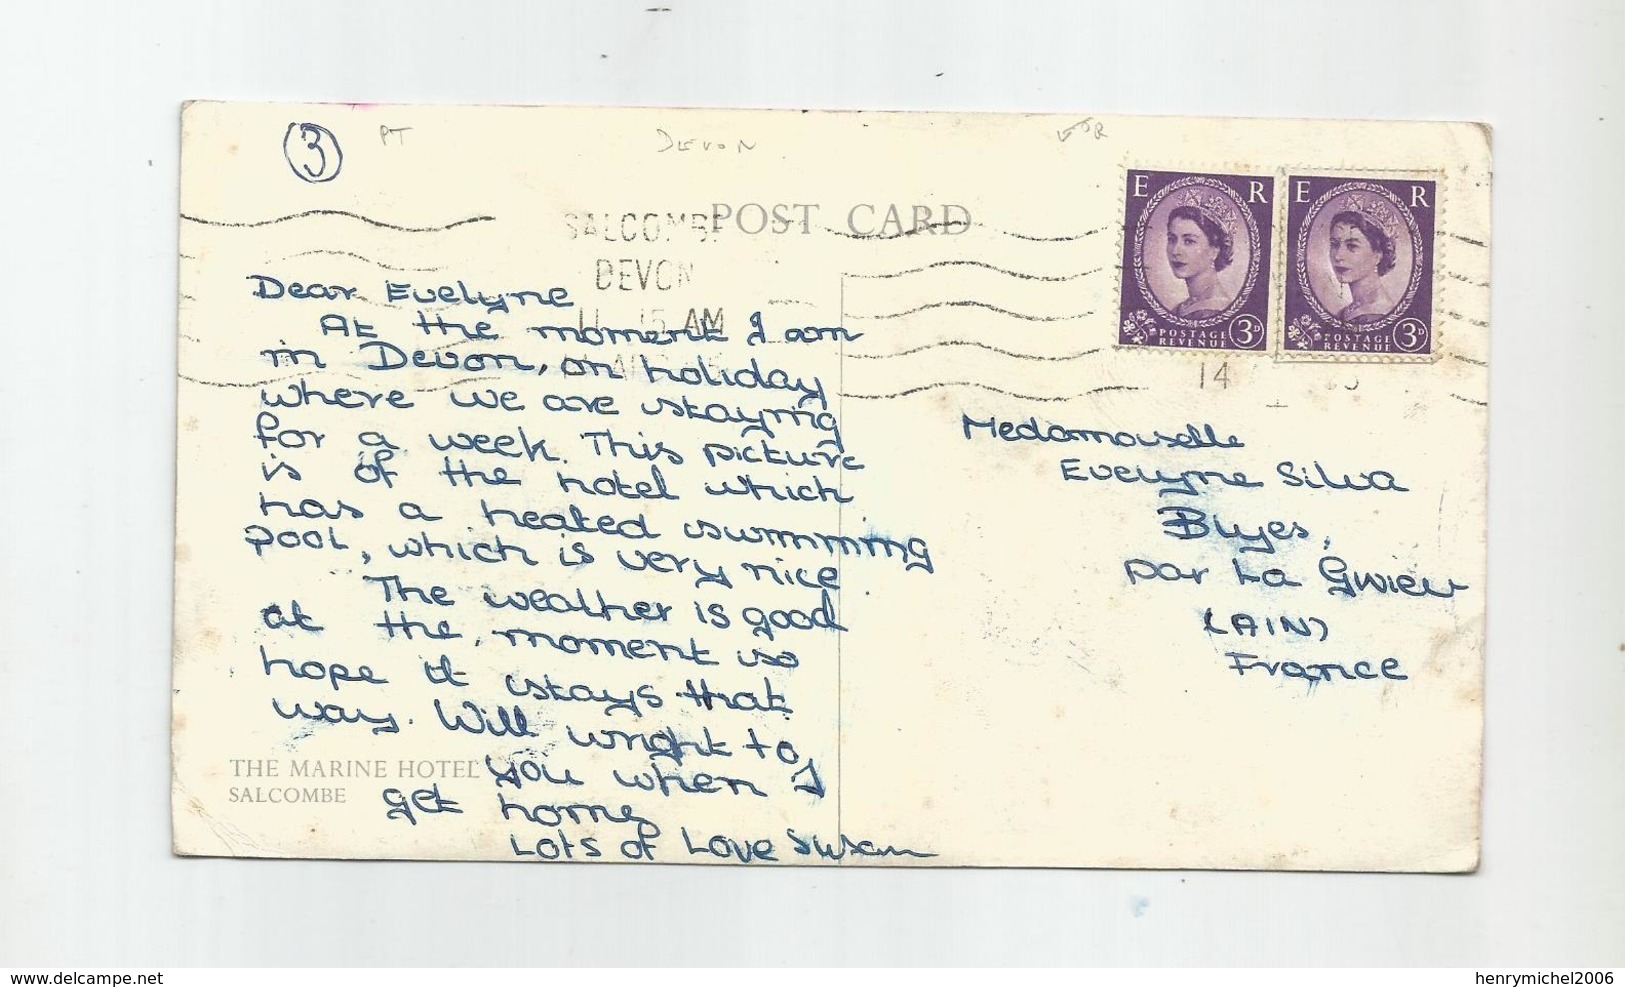 3
PT
DEVON
POST CARD
SALCOMBE
DEVON
AM
14
E R
POSTAGE
REVENUE
3D
E R
POSTAGE
REVENUE
3D
Dear Evelyne
At the moment I am
in Devon, on holiday
where we are staying
for a week. This picture
is of the hotel which
has a heated swimming
pool, which is very nice
The weather is good
at the moment so
hope it stays that
way. Will wright to
you when I
get home
Lots of Love Susan
THE MARINE HOTEL
SALCOMBE
Medamouselle
Evelyne Silva
Buyes,
par La Gwieu
(AIN)
France
delcampe.net
henrymichel2006